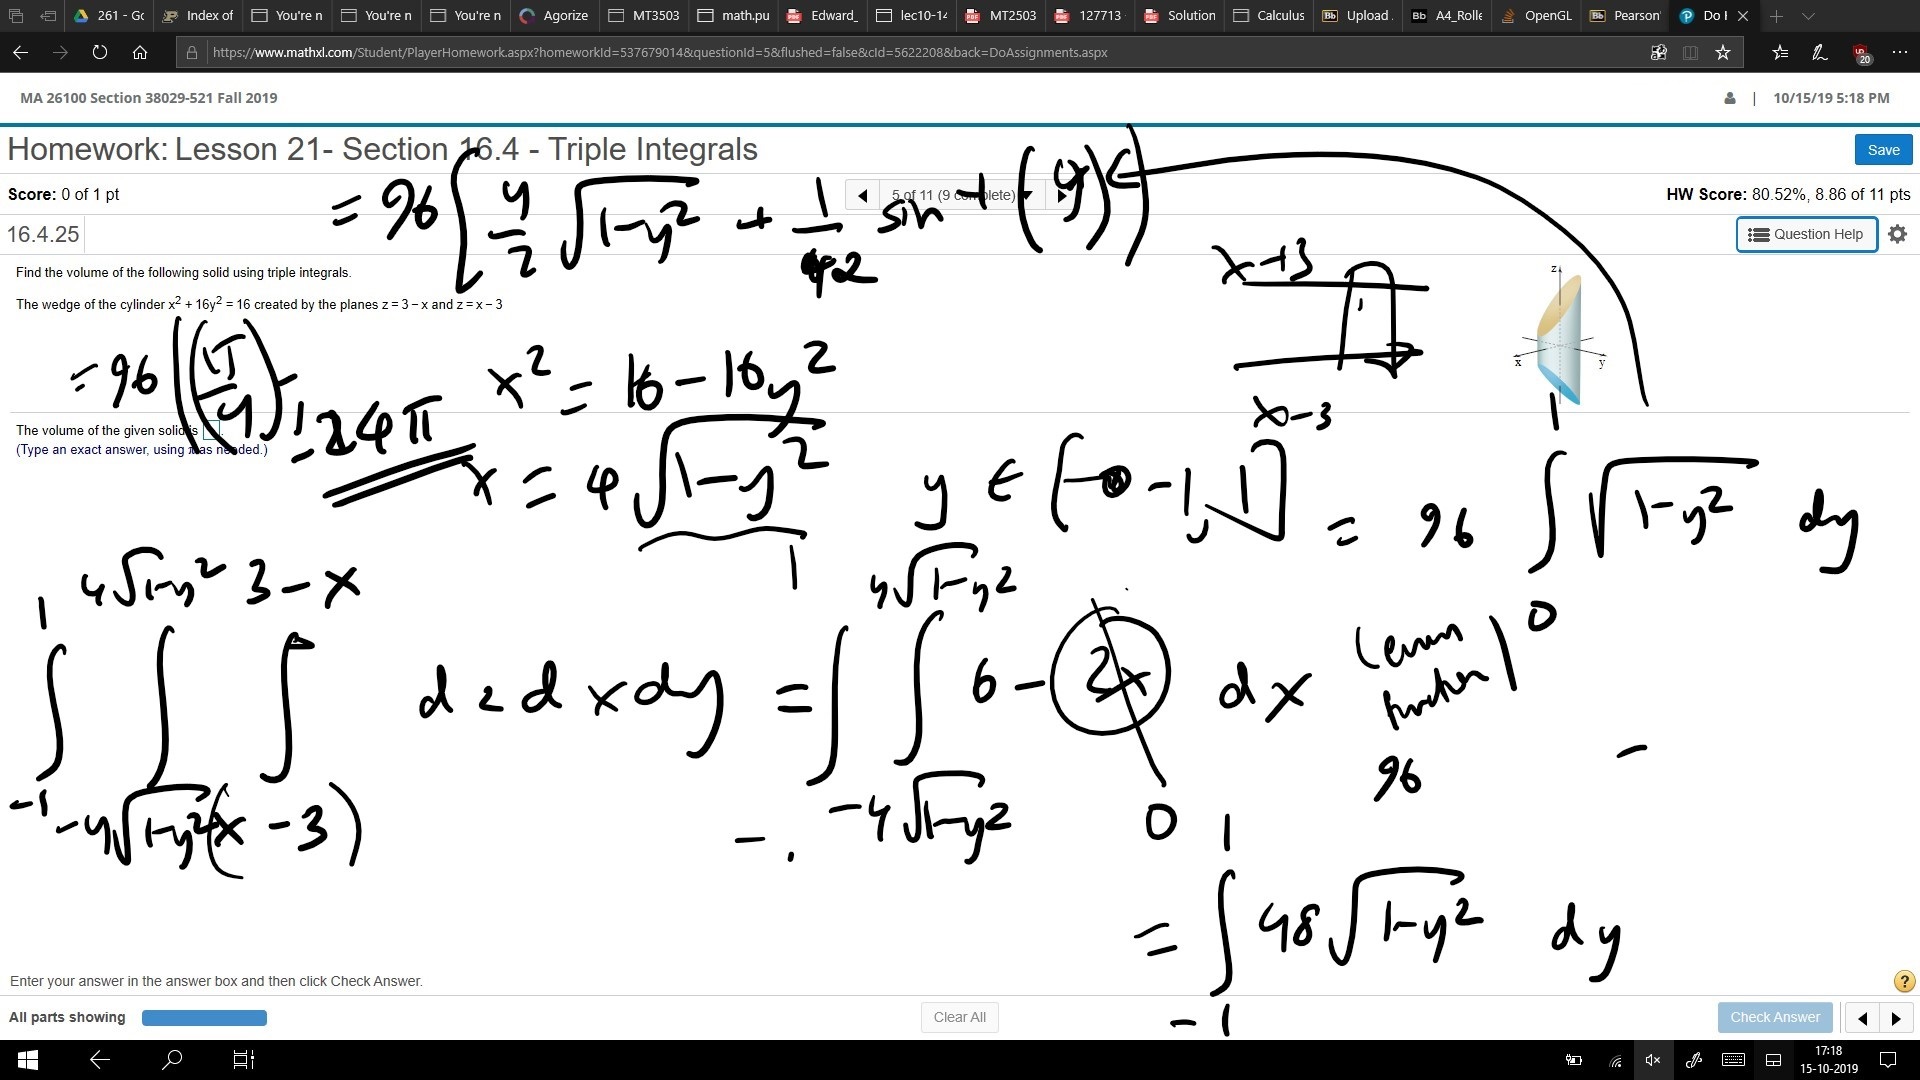 261 - Gc
Index of
You're n
You're n
You're n
Agorize
MT3503
math.pu
Edward_
lec10-14
MT2503
127713
Solution
Calculus
Upload .
A4_Rolle
OpenGL
Pearson'
Do I
https://www.mathxl.com/Student/PlayerHomework.aspx?homeworkId=537679014&questionId=5&flushed=false&cId=5622208&back=DoAssignments.aspx
20
MA 26100 Section 38029-521 Fall 2019
10/15/19 5:18 PM
Homework: Lesson 21- Section 16.4 - Triple Integrals
Save
Score: 0 of 1 pt
5 of 11 (9 complete)
HW Score: 80.52%, 8.86 of 11 pts
= 96 [ y/2 √(1-y²) + 1/2 sin⁻¹ (y) ]
16.4.25
Question Help
Find the volume of the following solid using triple integrals.
The wedge of the cylinder x² + 16y² = 16 created by the planes z = 3 − x and z = x − 3
z
x
y
x+3
x-3
= 96 (π/4)
= 24π
x² = 16 - 16y²
The volume of the given solid is
(Type an exact answer, using π as needed.)
x = 4√(1-y²)
y ∈ [-1, 1]
= 96 ∫₀¹ √(1-y²) dy
∫₋₁¹ ∫_{-4√(1-y²)}^{4√(1-y²)} ∫_{(x-3)}^{3-x} dz dx dy = ∫¹ ∫_{-4√(1-y²)}^{4√(1-y²)} 6 - 2x dx
0
(even function)
96
= ∫₋₁¹ 48√(1-y²) dy
Enter your answer in the answer box and then click Check Answer.
?
All parts showing
Clear All
Check Answer
17:18
15-10-2019